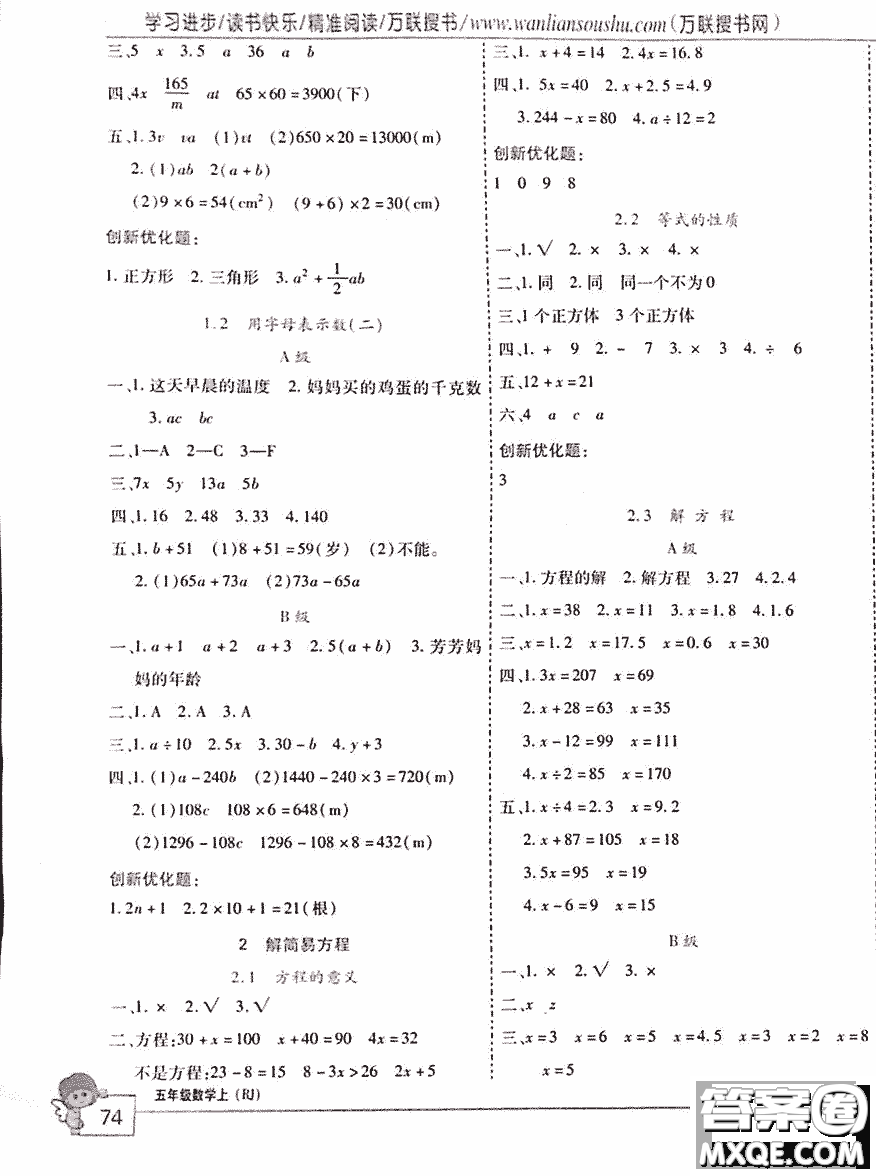 学习进步/读书快乐/精准阅读/万联搜书/www.wanliansoushu.com(万联搜书网)
三、5 x 3.5 a 36 a b
四、4x 165/m at 65×60=3900(下)
五、1.3v va (1)vt (2)650×20=13000(m)
2.(1)ab 2(a+b)
(2)9×6=54(cm²) (9+6)×2=30(cm)
创新优化题:
1.正方形 2.三角形 3.a²+1/2ab
1.2 用字母表示数(二)
A级
一、1.这天早晨的温度 2.妈妈买的鸡蛋的千克数
3.ac bc
二、1—A 2—C 3—F
三、7x 5y 13a 5b
四、1.16 2.48 3.33 4.140
五、1.b+51 (1)8+51=59(岁) (2)不能。
2.(1)65a+73a (2)73a-65a
B级
一、1.a+1 a+2 a+3 2.5(a+b) 3.芳芳妈
妈的年龄
二、1.A 2.A 3.A
三、1.a÷10 2.5x 3.30-b 4.y+3
四、1.(1)a-240b (2)1440-240×3=720(m)
2.(1)108c 108×6=648(m)
(2)1296-108c 1296-108×8=432(m)
创新优化题:
1.2n+1 2.2×10+1=21(根)
2 解简易方程
2.1 方程的意义
一、1.× 2.√ 3.√
二、方程:30+x=100 x+40=90 4x=32
不是方程:23-8=15 8-3x>26 2x+5
三、1.x+4=14 2.4x=16.8
四、1.5x=40 2.x+2.5=4.9
3.244-x=80 4.a÷12=2
创新优化题:
1 0 9 8
2.2 等式的性质
一、1.√ 2.× 3.× 4.×
二、1.同 2.同 同一个不为0
三、1个正方体 3个正方体
四、1.+ 9 2.- 7 3.× 3 4.÷ 6
五、12+x=21
六、4 a c a
创新优化题:
3
2.3 解方程
A级
一、1.方程的解 2.解方程 3.27 4.2.4
二、1.x=38 2.x=11 3.x=1.8 4.1.6
三、x=1.2 x=17.5 x=0.6 x=30
四、1.3x=207 x=69
2.x+28=63 x=35
3.x-12=99 x=111
4.x÷2=85 x=170
五、1.x÷4=2.3 x=9.2
2.x+87=105 x=18
3.5x=95 x=19
4.x-6=9 x=15
B级
一、1.× 2.√ 3.×
二、x z
三、x=3 x=6 x=5 x=4.5 x=3 x=2 x=8
x=5
五年级数学上(RJ)
74
答案卷
MXQE.COM